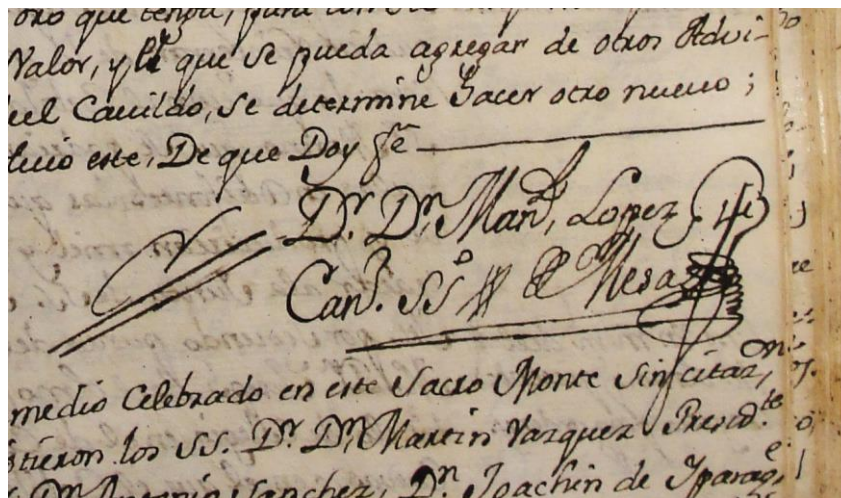 oro que tenga, para
Valor, y lo que se pueda agregar de otros Advi-
uel Cavildo, se determine hacer otro nuevo;
luio este, De que Doy fe
Dr. Dn. Manl. Lopez
Cano. SSo Mesa
medio Celebrado en este Sacro Monte Sin citazon,
stieron los SS. Dr. Dn. Martin Vazquez Presidte
Dn. Antonio Sanchez, Dn. Joachin de Yparage